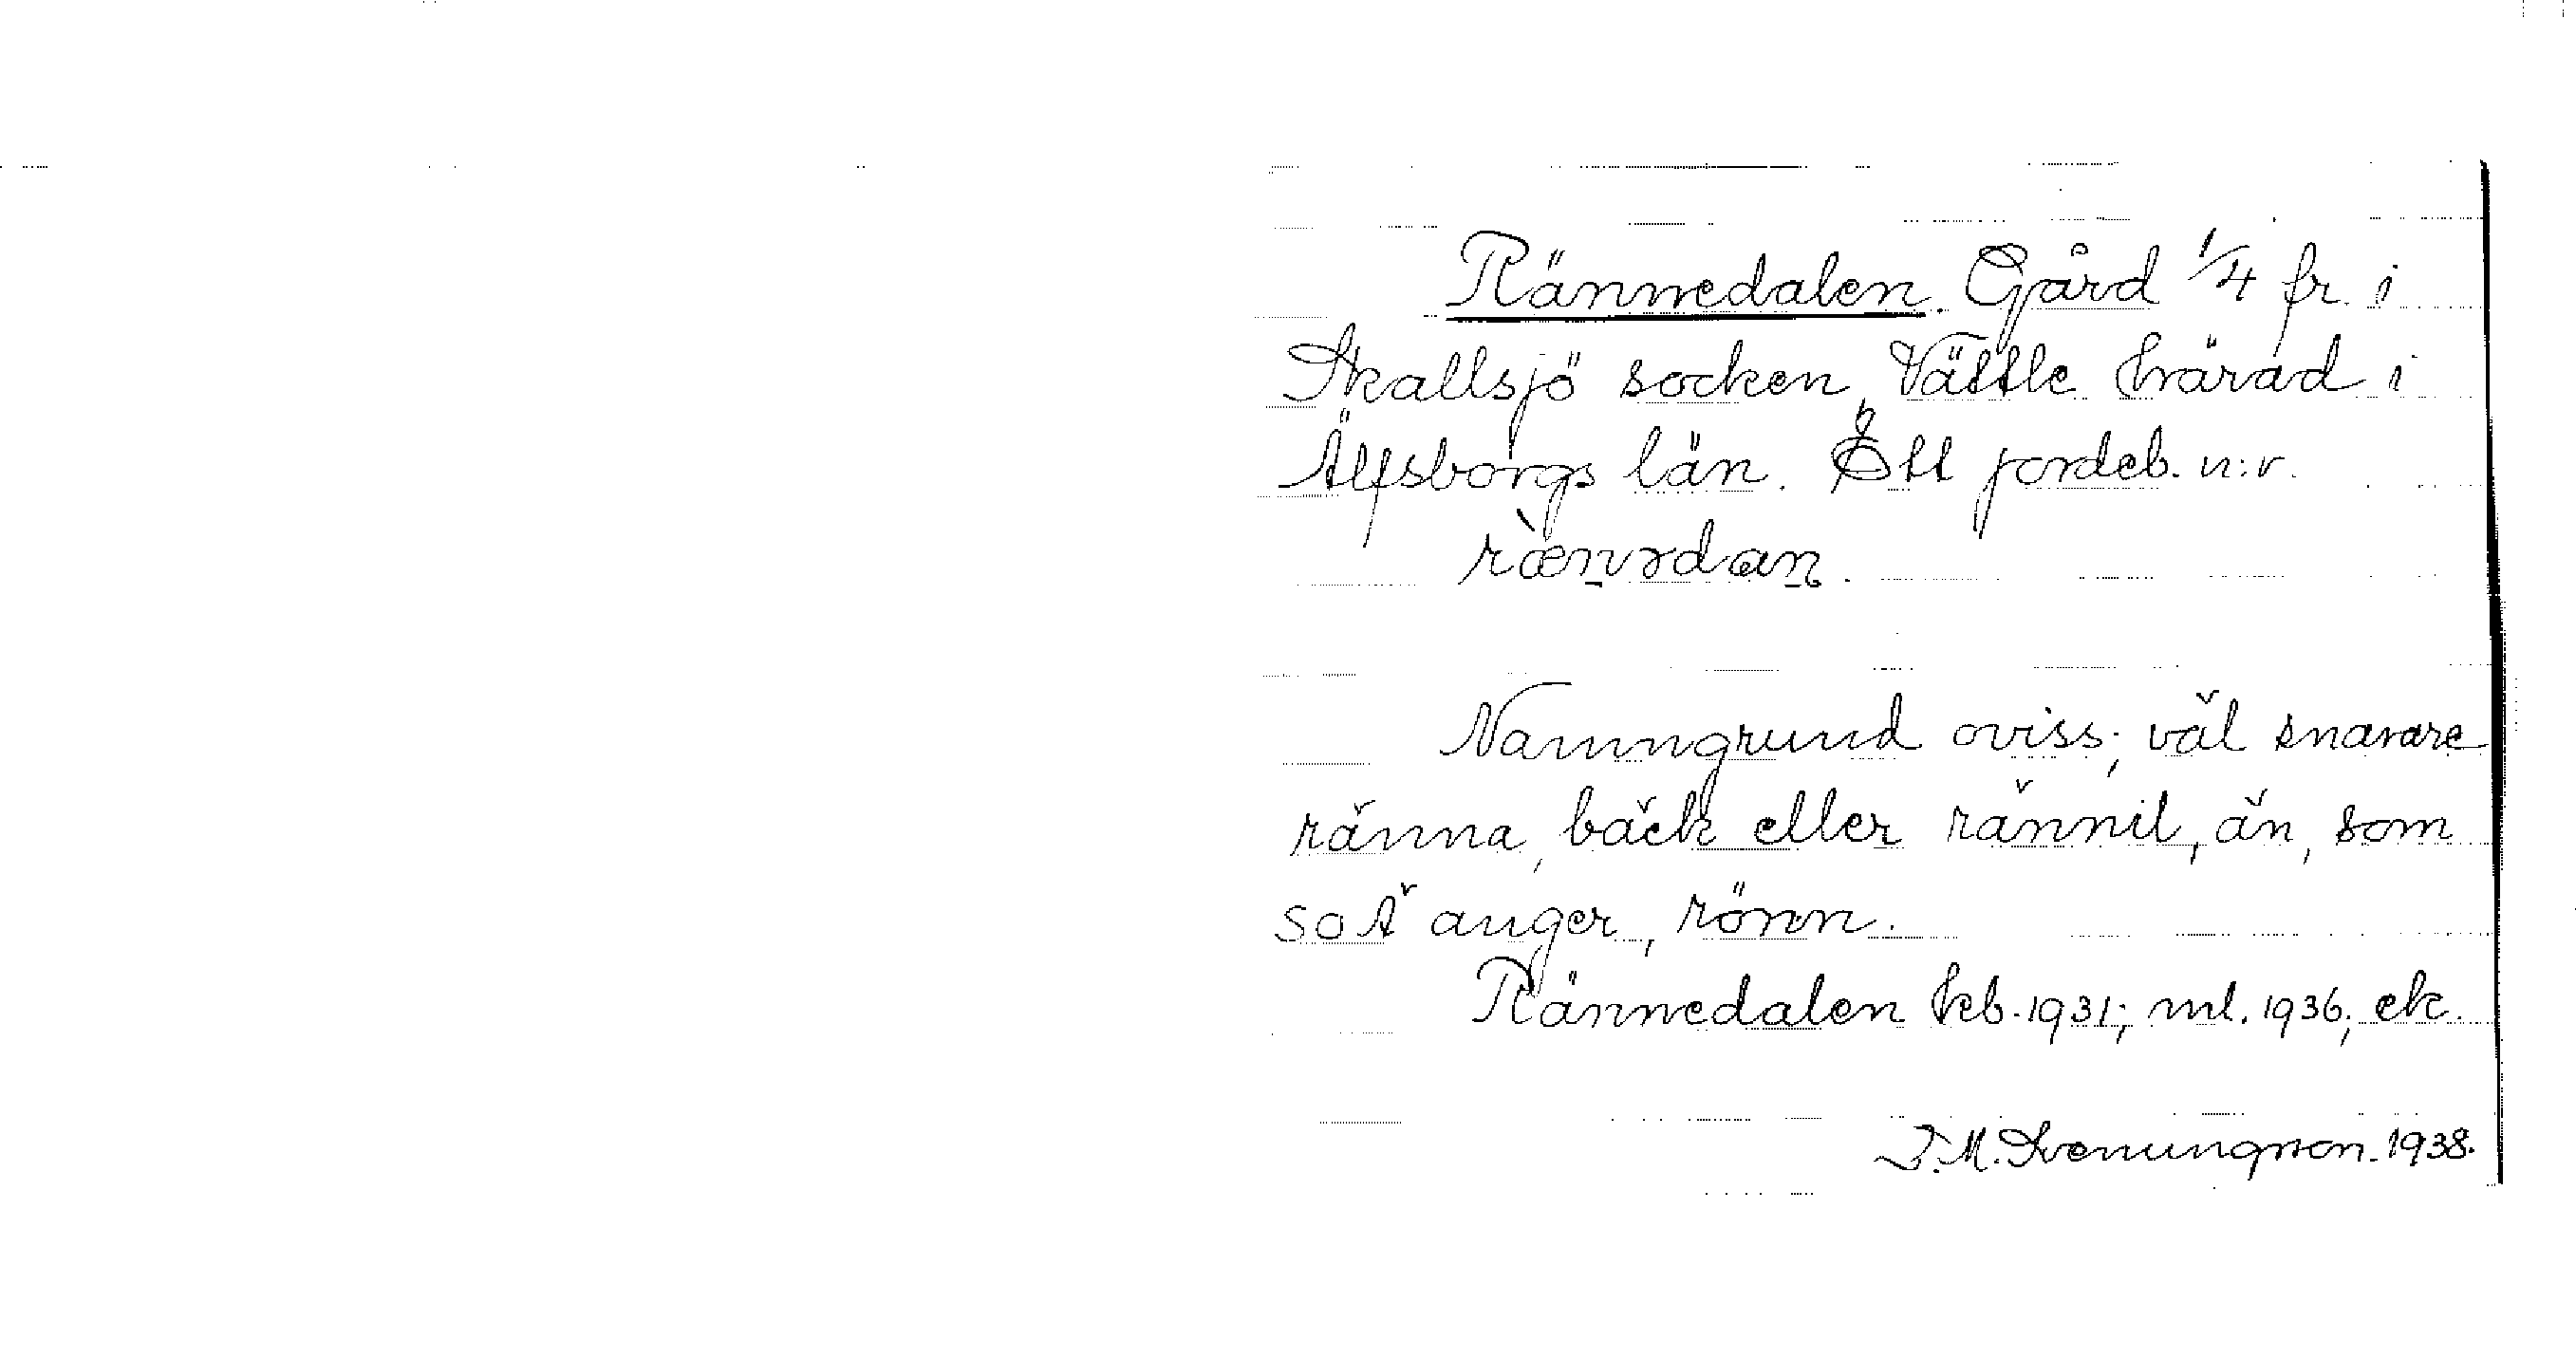 Rännedalen. Gård 1/4 fr. i
Skallsjö socken, Vättle härad i
Älfsborgs län. Ett jordeb. n:r.
ræ̀nədan.
Namngrund oviss; väl snarare
ränna, bäck eller rännil, än, som
SOÄ anger, rönn.
Rännedalen kb. 1931; ml. 1936; ek.
D. M. Svenungsson. 1938.